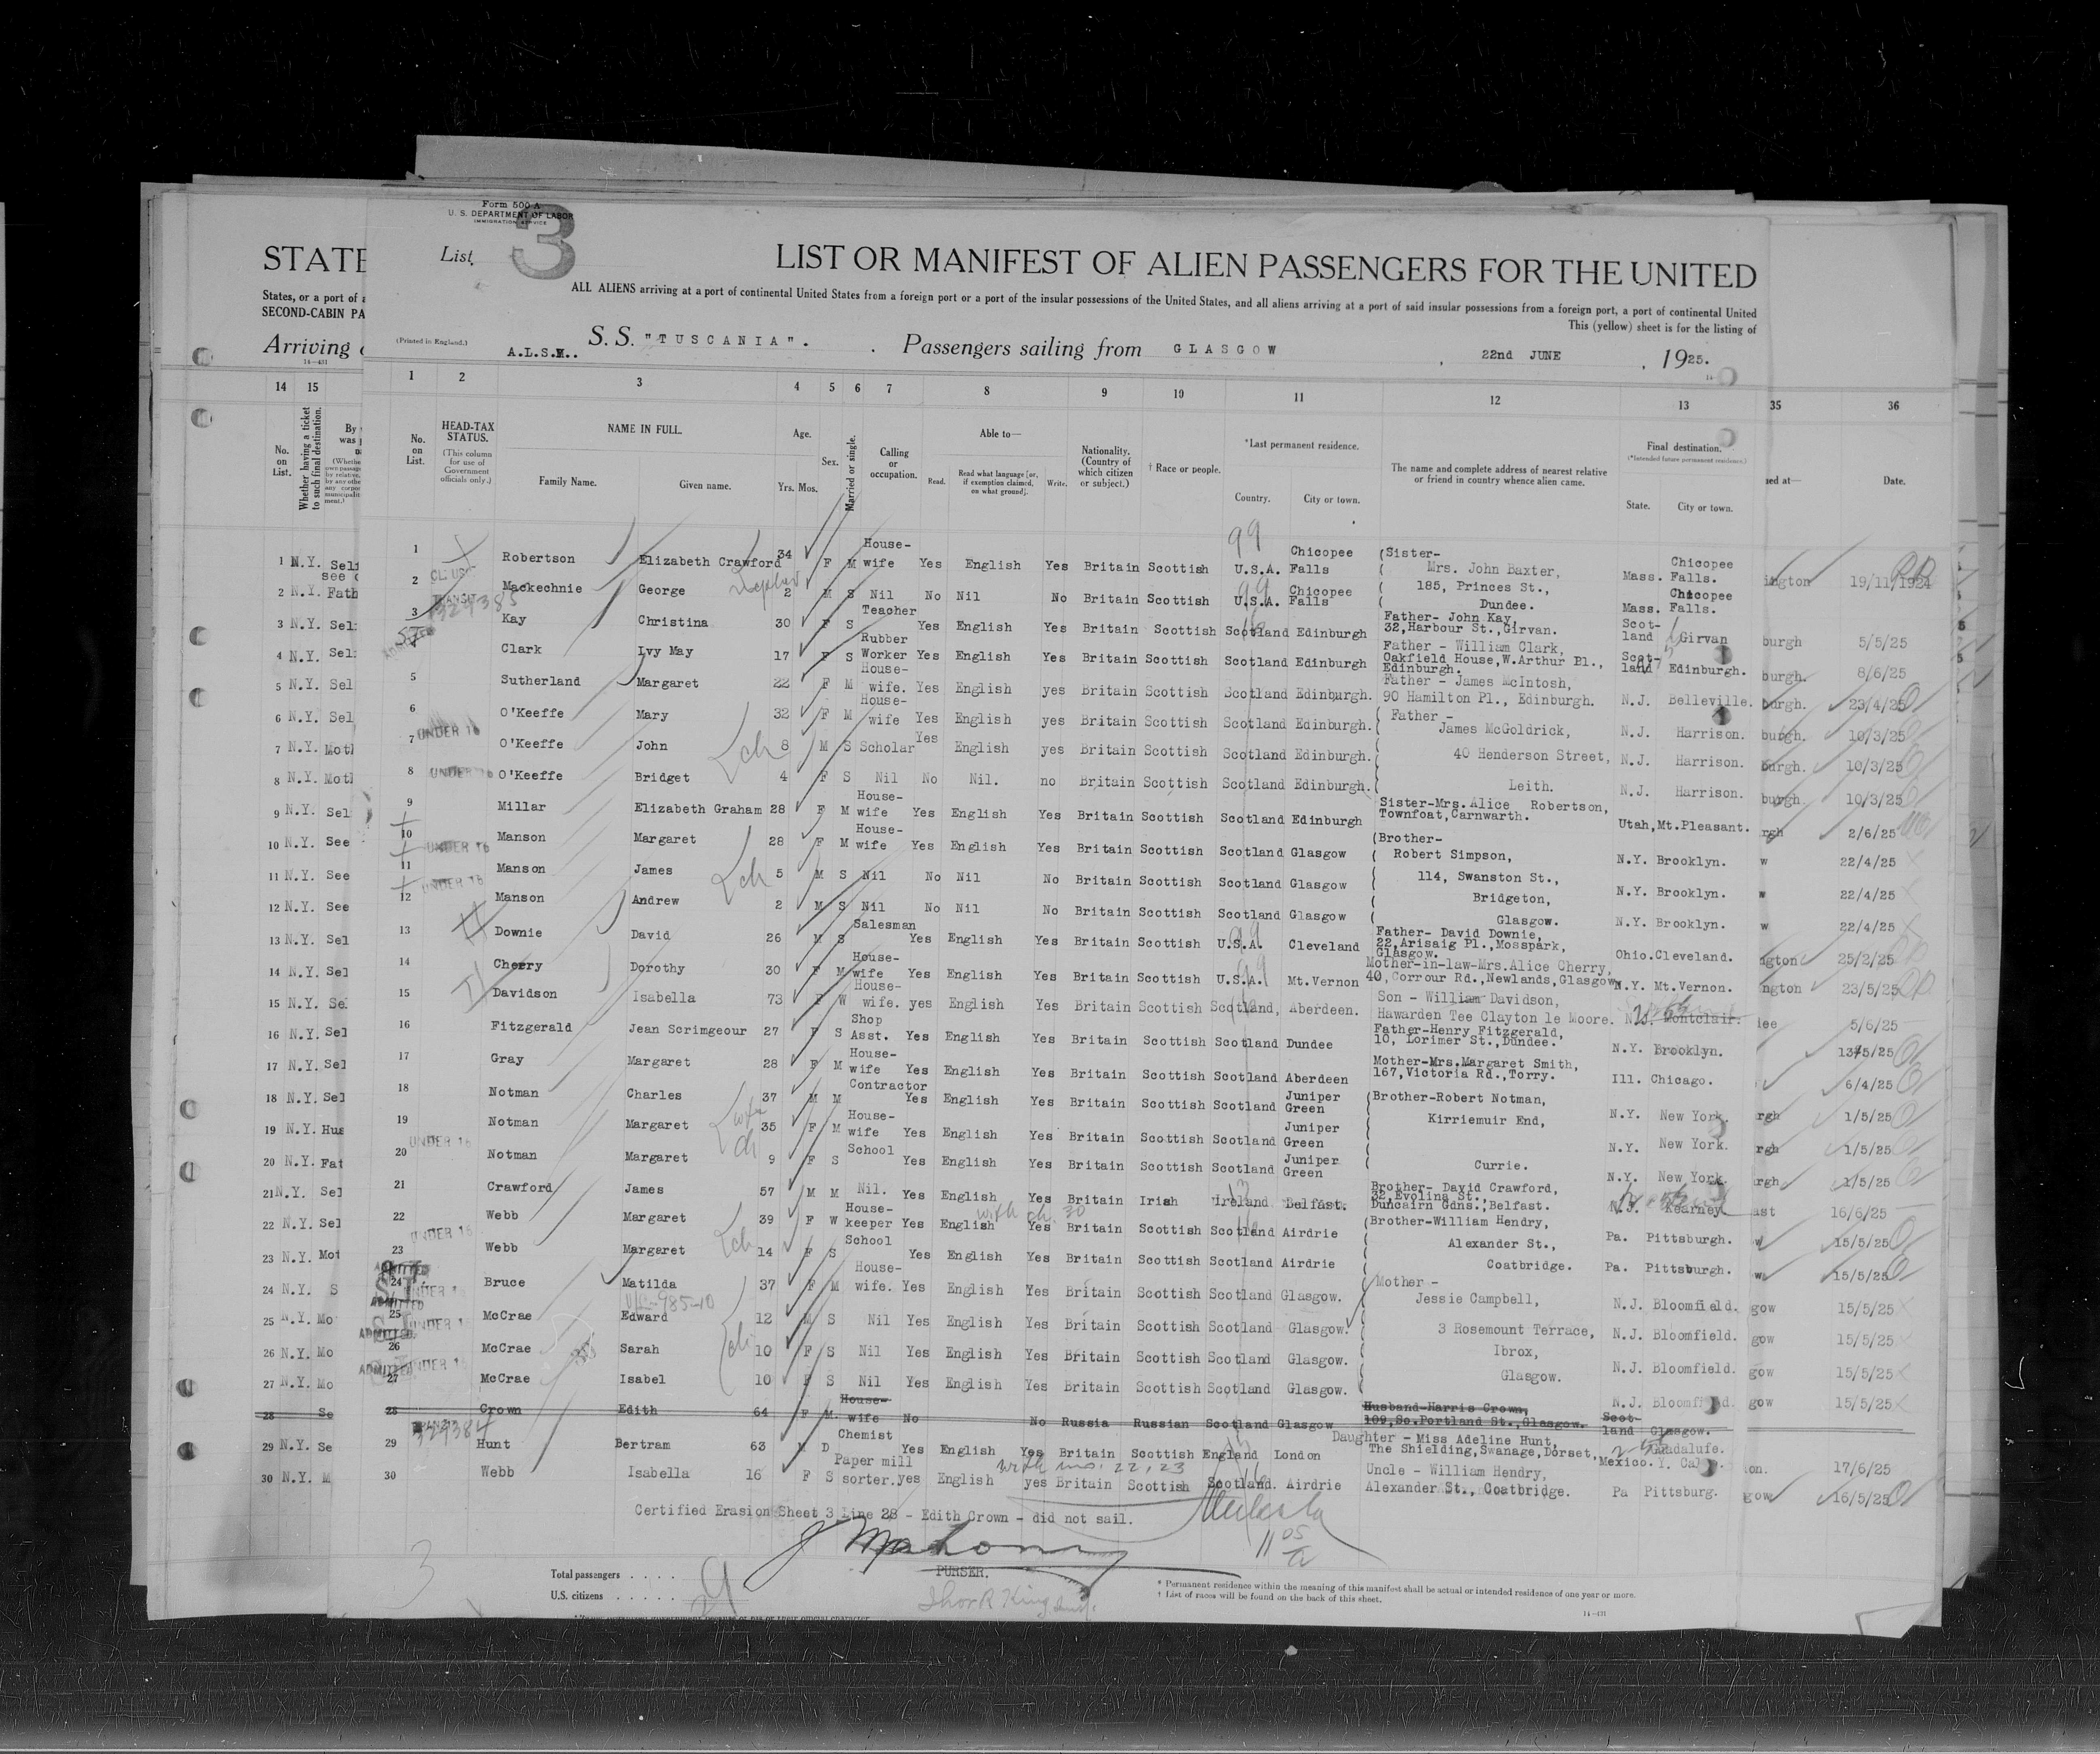 Form 500 A
U. S. DEPARTMENT OF LABOR
IMMIGRATION SERVICE
List 3
STATE LIST OR MANIFEST OF ALIEN PASSENGERS FOR THE UNITED
ALL ALIENS arriving at a port of continental United States from a foreign port or a port of the insular possessions of the United States, and all aliens arriving at a port of said insular possessions from a foreign port, a port of continental United
States, or a port of
SECOND-CABIN PA
This (yellow) sheet is for the listing of
Arriving
14-431
(Printed in England.)
S. S. "TUSCANIA". Passengers sailing from GLASGOW, 22nd JUNE, 1925.
14 15 1 2 3 4 5 6 7 8 9 10 11 12 13 35 36
No. on List.
Whether having a ticket to such final destination.
No. on List.
HEAD-TAX STATUS.
(This column for use of Government officials only.)
NAME IN FULL.
Family Name. Given name.
Age.
Yrs. Mos.
Sex.
Married or single.
Calling or occupation.
Able to—
Read. Read what language [or, if exemption claimed, on what ground]. Write.
Nationality. (Country of which citizen or subject.)
† Race or people.
*Last permanent residence.
Country. City or town.
The name and complete address of nearest relative or friend in country whence alien came.
Final destination.
(*Intended future permanent residence.)
State. City or town.
Date.
1 Robertson Elizabeth Crawford 34 F M House-wife Yes English Yes Britain Scottish U.S.A. Chicopee Falls Sister- Mass. Chicopee Falls. 19/11/1924
2 Mackechnie George 2 M S Nil No Nil No Britain Scottish U.S.A. Chicopee Falls Mrs. John Baxter, 185, Princes St., Dundee. Mass. Chicopee Falls.
3 Kay Christina 30 F S Teacher Yes English Yes Britain Scottish Scotland Edinburgh Father- John Kay, 32,Harbour St.,Girvan. Scot-land Girvan 5/5/25
Clark Ivy May 17 F S Rubber Worker Yes English Yes Britain Scottish Scotland Edinburgh Father - William Clark, Oakfield House,W.Arthur Pl., Edinburgh. Scot-land Edinburgh. 8/6/25
5 Sutherland Margaret 22 F M House-wife. Yes English yes Britain Scottish Scotland Edinburgh. Father - James McIntosh, 90 Hamilton Pl., Edinburgh. N.J. Belleville. 23/4/25
6 O'Keeffe Mary 32 F M House-wife Yes English yes Britain Scottish Scotland Edinburgh. Father - James McGoldrick, N.J. Harrison. 10/3/25
7 UNDER 16 O'Keeffe John 8 M S Scholar Yes English yes Britain Scottish Scotland Edinburgh. 40 Henderson Street, N.J. Harrison. 10/3/25
8 UNDER 16 O'Keeffe Bridget 4 F S Nil No Nil. no Britain Scottish Scotland Edinburgh. Leith. N.J. Harrison. 10/3/25
9 Millar Elizabeth Graham 28 F M House-wife Yes English Yes Britain Scottish Scotland Edinburgh Sister-Mrs.Alice Robertson, Townfoat,Carnwarth. Utah,Mt.Pleasant. 2/6/25
10 Manson Margaret 28 F M House-wife Yes English Yes Britain Scottish Scotland Glasgow Brother- Robert Simpson, N.Y. Brooklyn. 22/4/25
11 UNDER 16 Manson James 5 M S Nil No Nil No Britain Scottish Scotland Glasgow 114, Swanston St., N.Y. Brooklyn. 22/4/25
12 UNDER 16 Manson Andrew 2 M S Nil No Nil No Britain Scottish Scotland Glasgow Bridgeton, Glasgow. N.Y. Brooklyn. 22/4/25
13 Downie David 26 M S Salesman Yes English Yes Britain Scottish U.S.A. Cleveland Father- David Downie, 22,Arisaig Pl.,Mosspark, Glasgow. Ohio.Cleveland. 25/2/25
14 Cherry Dorothy 30 F M House-wife Yes English Yes Britain Scottish U.S.A. Mt.Vernon Mother-in-law-Mrs.Alice Cherry, 40,Corrour Rd.,Newlands,Glasgow N.Y. Mt.Vernon. 23/5/25
15 Davidson Isabella 73 F W House-wife. yes English Yes Britain Scottish Scotland, Aberdeen. Son - William Davidson, Hawarden Tee Clayton le Moore. Montclair. 5/6/25
16 Fitzgerald Jean Scrimgeour 27 F S Shop Asst. Yes English Yes Britain Scottish Scotland Dundee Father-Henry Fitzgerald, 10, Lorimer St.,Dundee. N.Y. Brooklyn. 13/5/25
17 Gray Margaret 28 F M House-wife Yes English Yes Britain Scottish Scotland Aberdeen Mother-Mrs.Margaret Smith, 167,Victoria Rd.,Torry. Ill. Chicago. 6/4/25
18 Notman Charles 37 M M Contractor Yes English Yes Britain Scottish Scotland Juniper Green Brother-Robert Notman, N.Y. New York. 1/5/25
19 Notman Margaret 35 F M House-wife Yes English Yes Britain Scottish Scotland Juniper Green Kirriemuir End, N.Y. New York. 1/5/25
20 UNDER 16 Notman Margaret 9 F S School Yes English Yes Britain Scottish Scotland Juniper Green Currie. N.Y. New York. 1/5/25
21 Crawford James 57 M M Nil. Yes English Yes Britain Irish Ireland Belfast. Brother- David Crawford, 32,Evolina St., Duncairn Gdns.,Belfast. N.J. Kearney 16/6/25
22 Webb Margaret 39 F W House-keeper Yes English with ch. 30 Yes Britain Scottish Scotland Airdrie Brother-William Hendry, Pa. Pittsburgh. 15/5/25
23 UNDER 16 Webb Margaret 14 F S School Yes English Yes Britain Scottish Scotland Airdrie Alexander St., Coatbridge. Pa. Pittsburgh. 15/5/25
24 Bruce Matilda 37 F M House-wife. Yes English Yes Britain Scottish Scotland Glasgow. Mother - Jessie Campbell, N.J. Bloomfield. 15/5/25
25 ADMITTED UNDER 16 McCrae Edward 12 M S Nil Yes English Yes Britain Scottish Scotland Glasgow. 3 Rosemount Terrace, N.J. Bloomfield. 15/5/25
26 ADMITTED UNDER 16 McCrae Sarah 10 F S Nil Yes English Yes Britain Scottish Scotland Glasgow. Ibrox, N.J. Bloomfield. 15/5/25
27 ADMITTED UNDER 16 McCrae Isabel 10 F S Nil Yes English Yes Britain Scottish Scotland Glasgow. Glasgow. N.J. Bloomfield. 15/5/25
28 Crown Edith 64 F M. House-wife No No Russia Russian Scotland Glasgow Husband-Harris Crown, 109,So.Portland St.,Glasgow. Scot-land Glasgow.
29 329384 Hunt Bertram 63 M D Chemist Yes English Yes Britain Scottish England London Daughter - Miss Adeline Hunt, The Shielding,Swanage,Dorset, Mexico. Guadalufe. 17/6/25
30 Webb Isabella 16 F S Paper mill sorter. yes English with nos. 22, 23 yes Britain Scottish Scotland. Airdrie Uncle - William Hendry, Alexander St., Coatbridge. Pa Pittsburg. 16/5/25
Certified Erasion Sheet 3 Line 28 - Edith Crown - did not sail.
J Mahony
PURSER.
3
Total passengers . . . . .
U.S. citizens . . . . .
* Permanent residence within the meaning of this manifest shall be actual or intended residence of one year or more.
† List of races will be found on the back of this sheet.
14-431